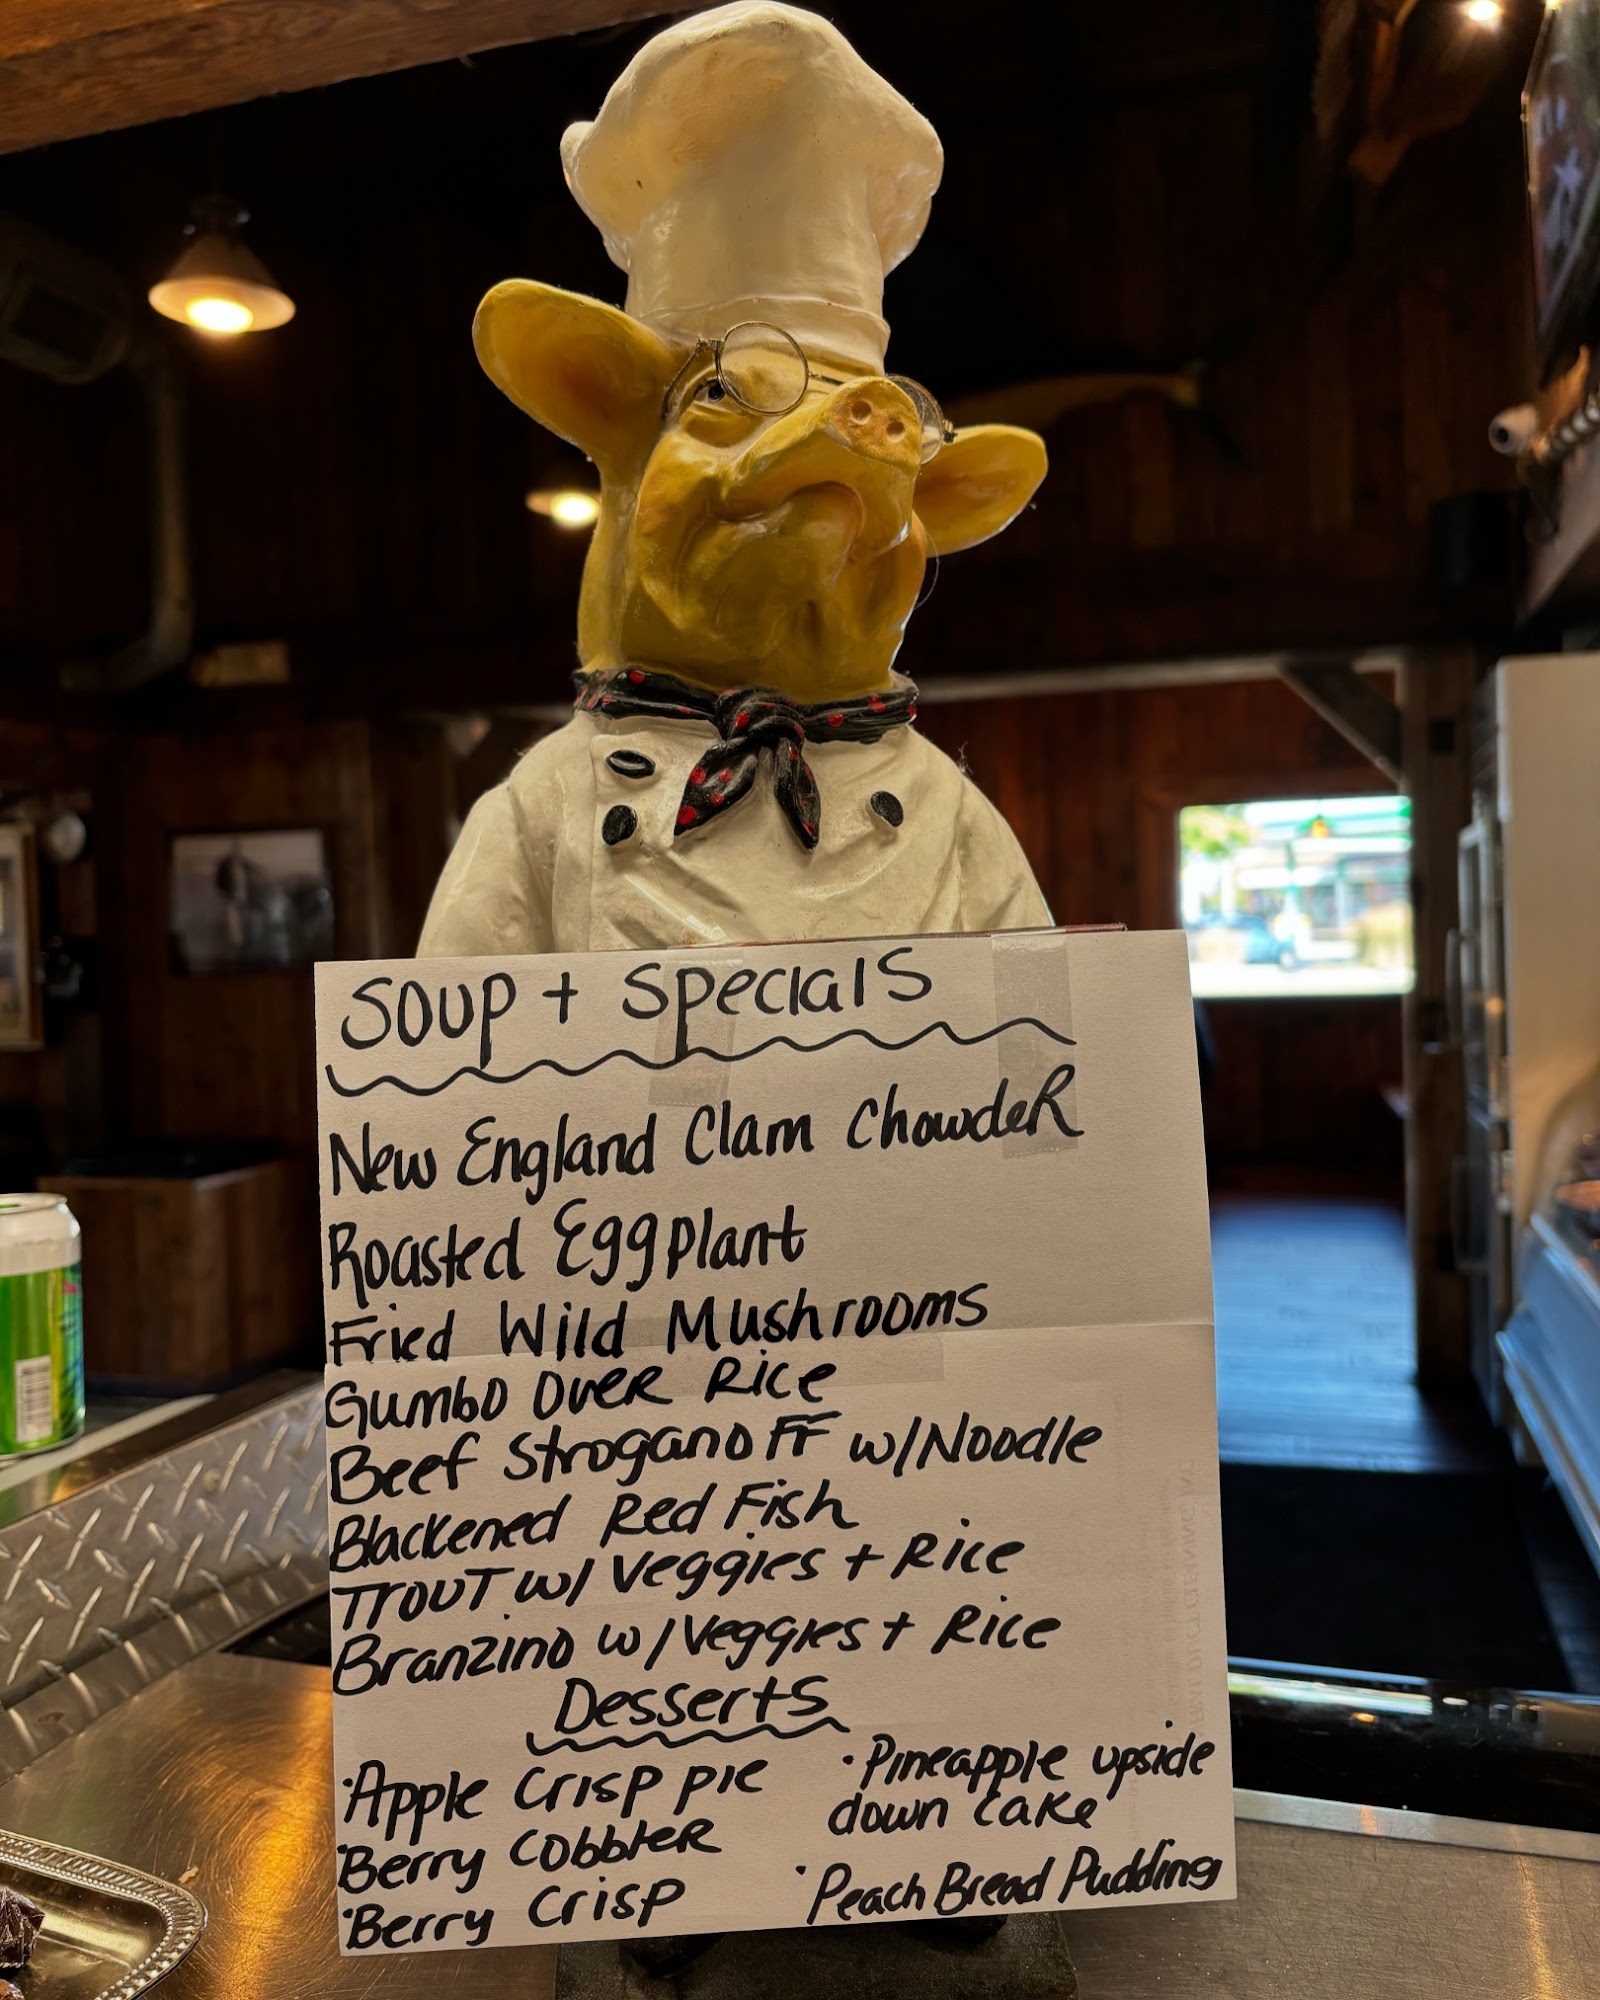 Soup + Specials
New England Clam Chowder
Roasted Eggplant
Fried Wild Mushrooms
Gumbo Over Rice
Beef Stroganoff w/Noodle
Blackened Red Fish
Trout w/ Veggies + Rice
Branzino w/Veggies + Rice
Desserts
·Apple Crisp pie
·Berry Cobbler
·Berry Crisp
·Pineapple upside
down cake
·Peach Bread Pudding